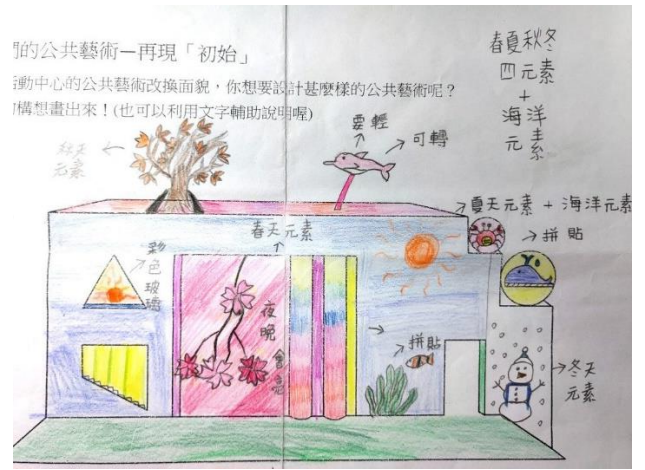 們的公共藝術—再現「初始」
活動中心的公共藝術改換面貌，你想要設計甚麼樣的公共藝術呢？
構想畫出來！(也可以利用文字輔助說明喔)
春夏秋冬
四元素
+
海洋
元素
要輕
可轉
秋天
元素
夏天元素 + 海洋元素
拼貼
春天元素
彩色玻璃
夜晚會亮
拼貼
冬天
元素